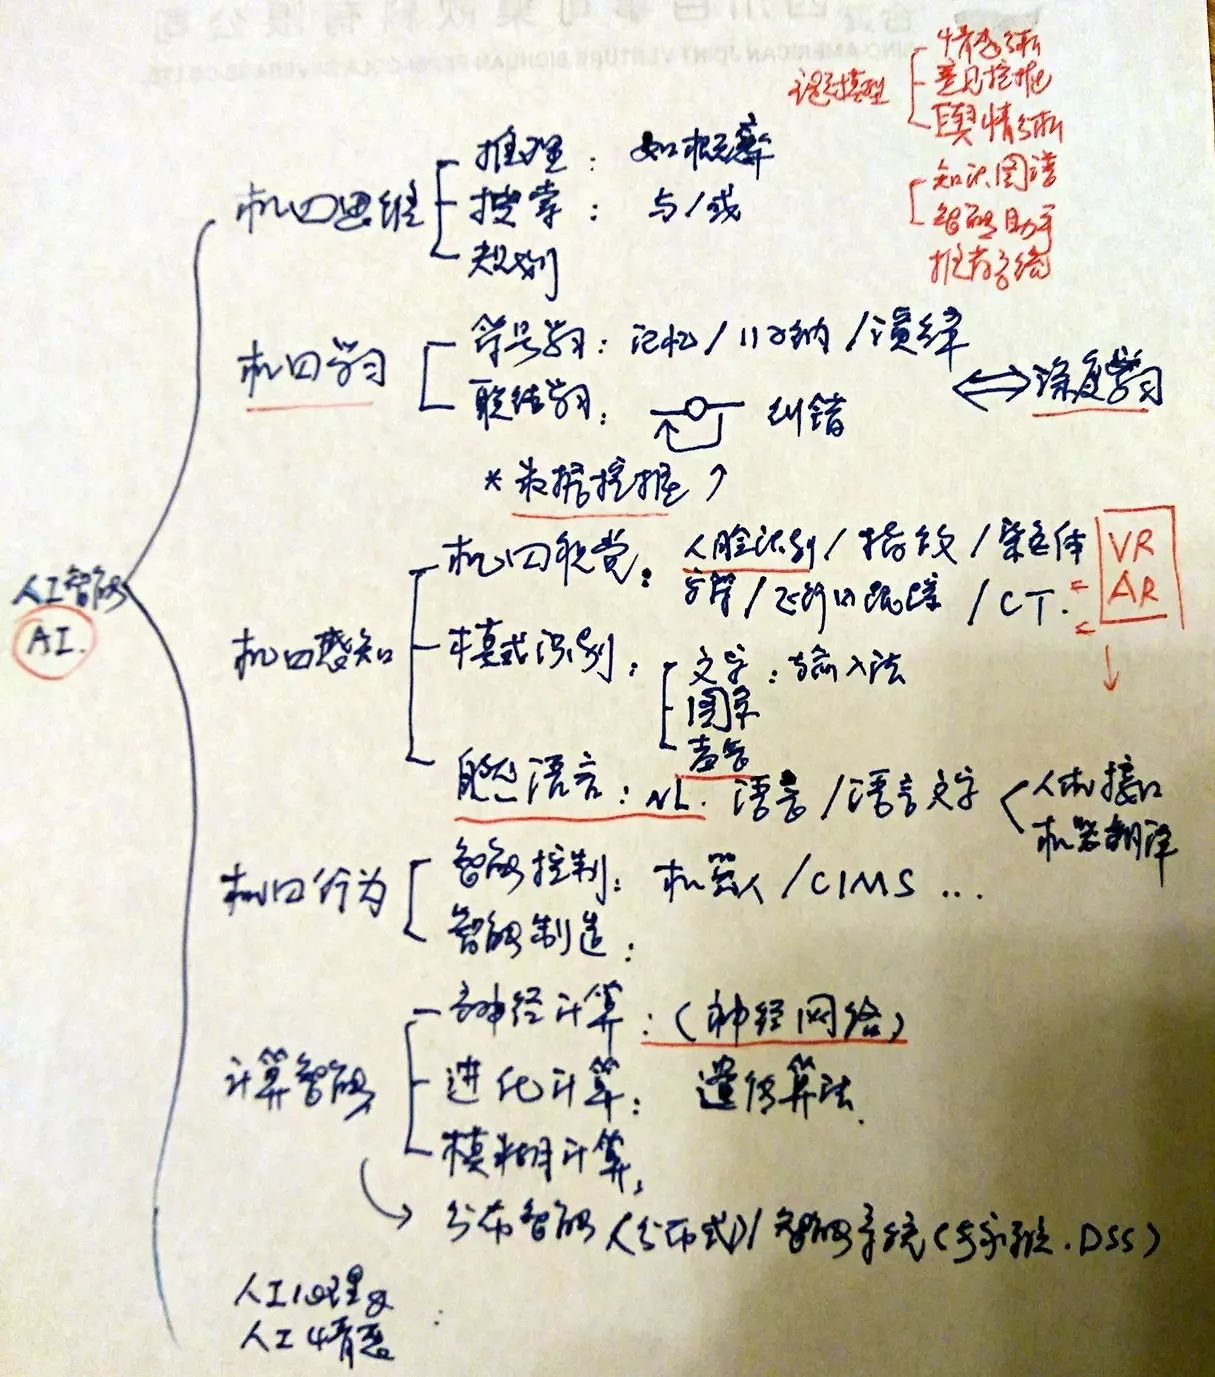 情感分析
意见挖掘
舆情分析
知识图谱
智能助手
推荐系统
机口思维
推理：如概率
搜索：与/或
规划
机口学习
符号学习：记忆/归纳/演绎
联结学习：纠错
⇔深度学习
*数据挖掘
人工智能
AI.
机口感知
机口视觉：人脸识别/指纹/染色体
/CT.
VR
AR
模式识别：
文字：输入法
图象
声音
自然语言：NL. 语音/语言文字
人机接口
机器翻译
机口行为
智能控制：机器人/CIMS ...
智能制造：
计算智能
神经计算：(神经网络)
进化计算：遗传算法.
模糊计算
分布智能(分布式)/智能系统(专家系统.DSS)
人工心理及
人工情感：